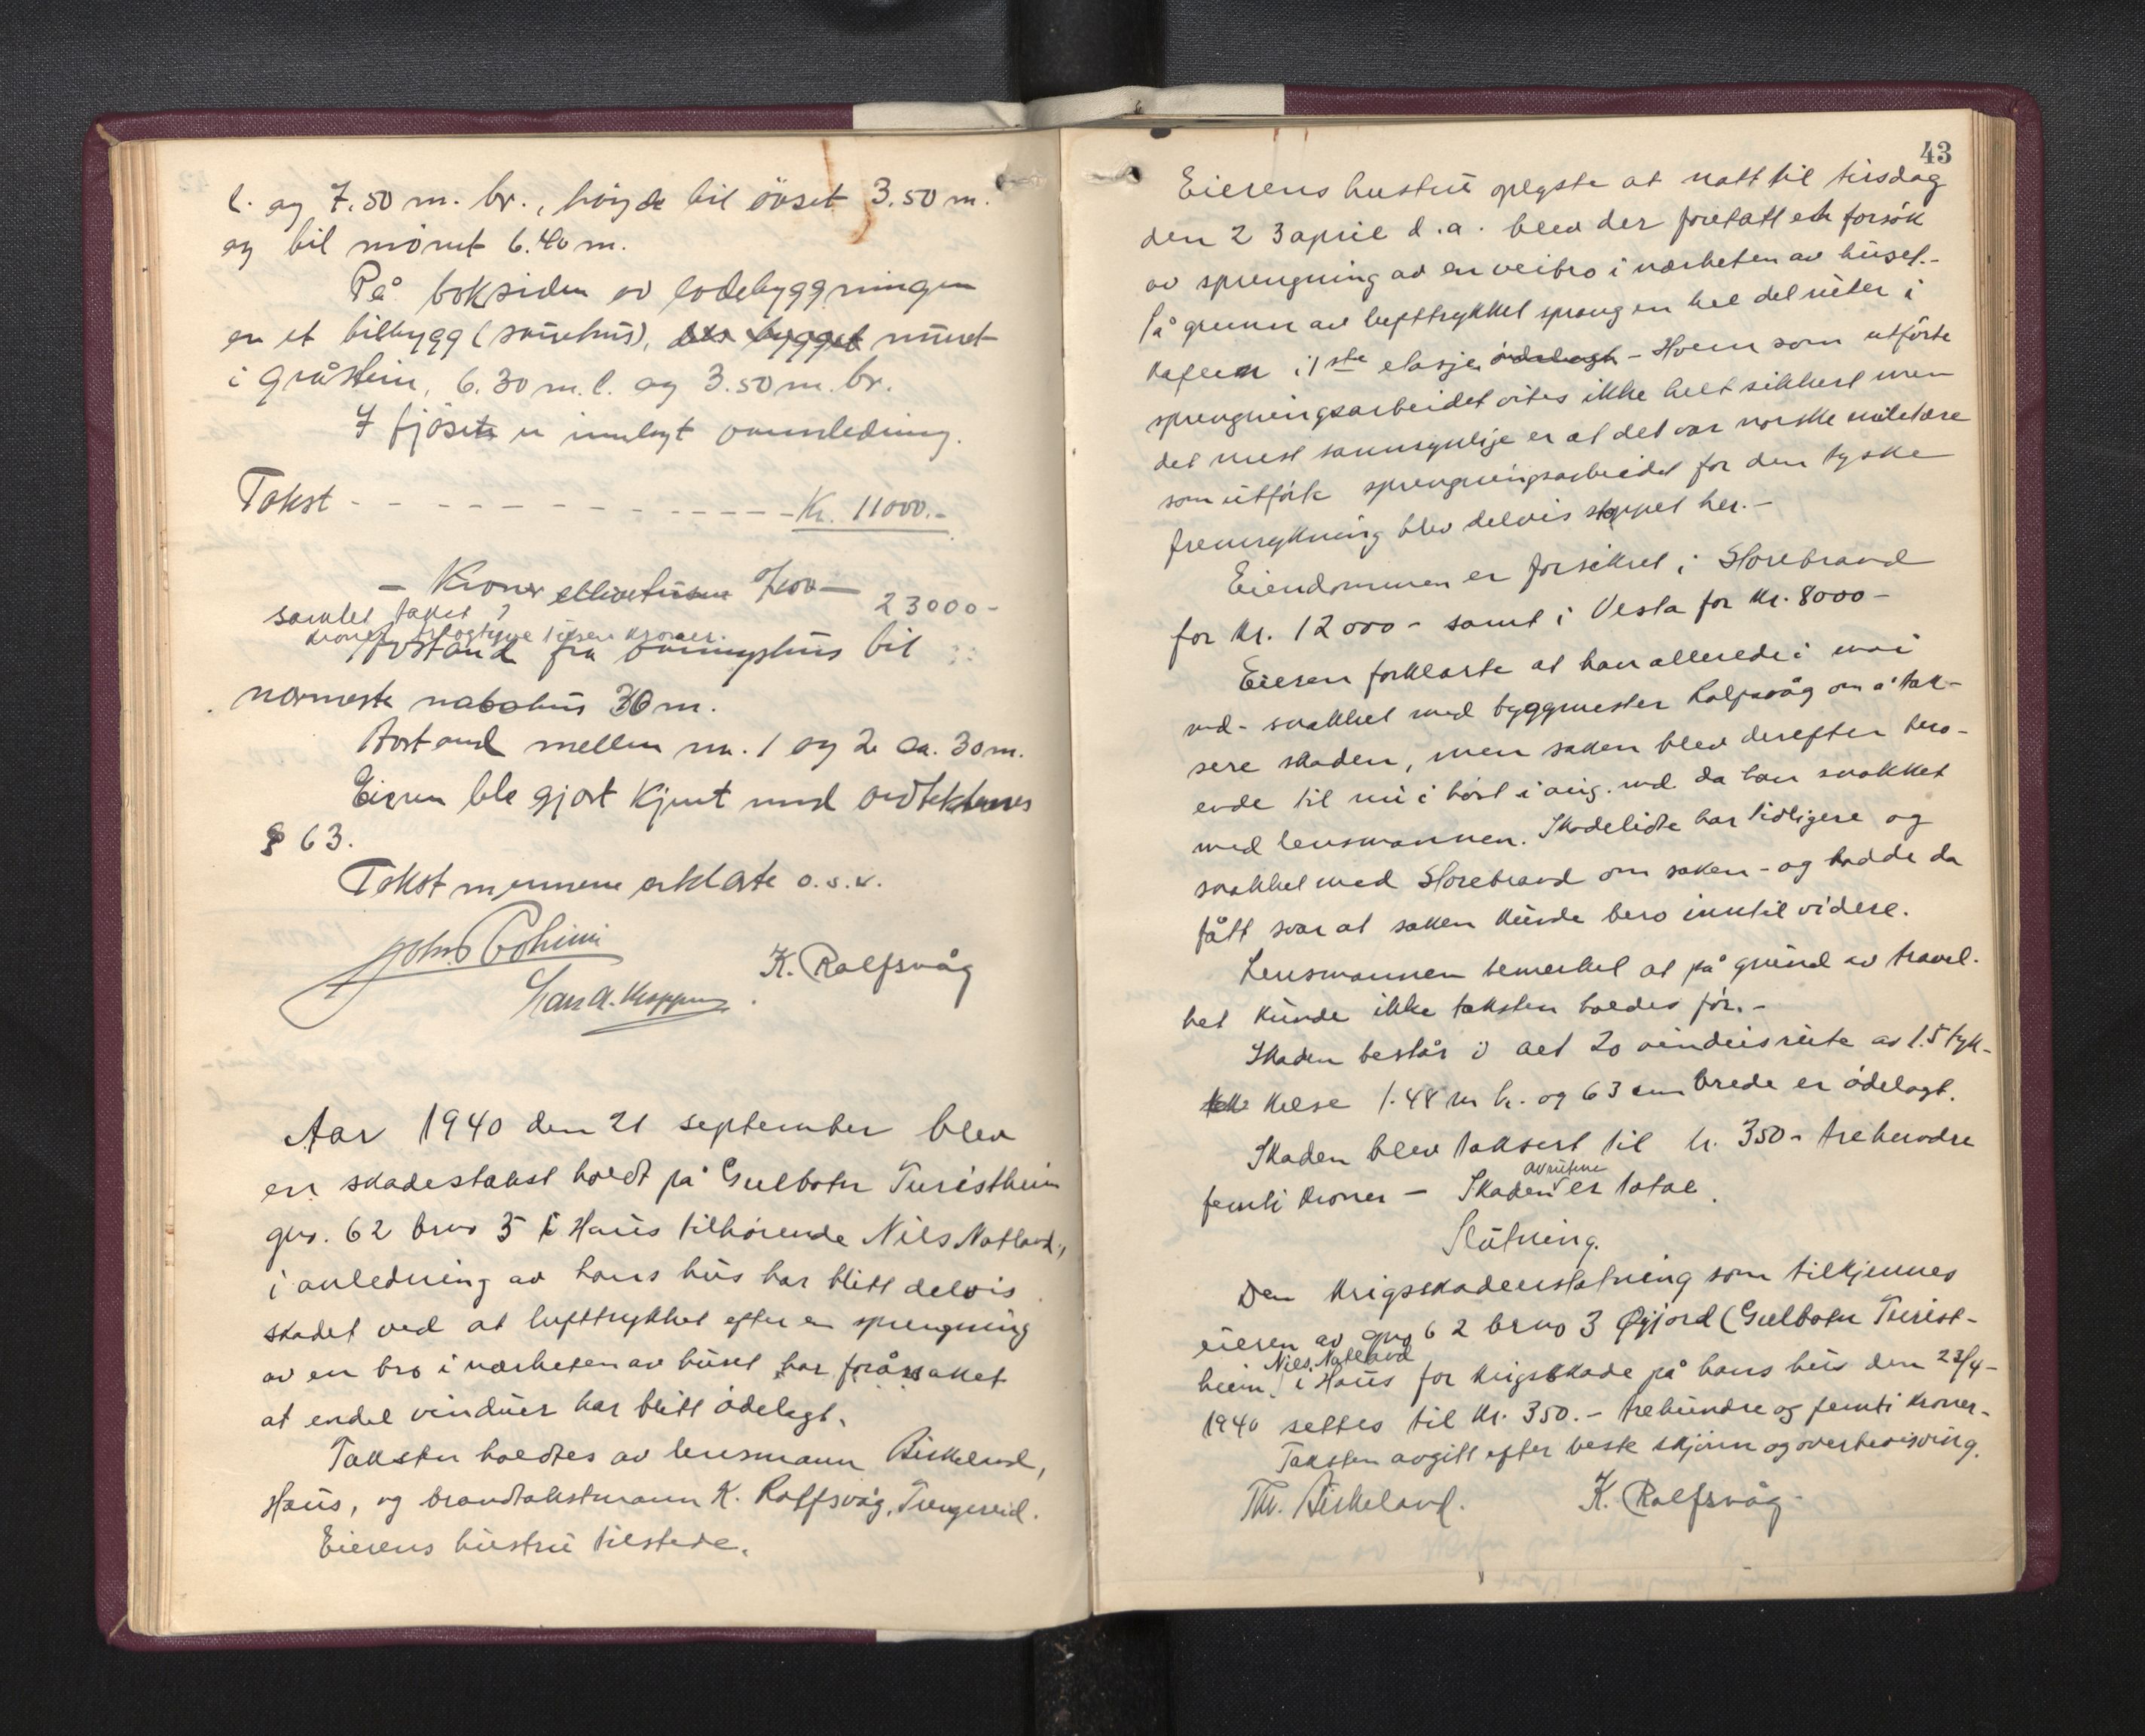 l. og 7.50 m. br., höyde til övset 3.50 m.
og til mönet 6.40 m.
På baksiden av lödebyggningen
er et tilbygg (sauehus), bygget muret
i gråstein, 6.30 m. l. og 3.50 m. br.
I fjöset er innlagt vannledning.
Takst - - - - - - - - - - - - Kr. 11000.-
- Kroner ellevetusen 0/100 -
samlet takst 23000-
kroner treogtyve tusen kroner.
Avstand fra våningshus til
nærmeste nabohus 30 m.
Avstand mellem nr. 1 og 2 ca. 30 m.
Eieren ble gjort kjent med vedtektenes
§ 63.
Takstmennene erklærte o.s.v.
K. Ralfsvåg
Aar 1940 den 21 september blev
en skadestakst holdt på Gulbotn Turistheim
gnr. 62 brno 3 i Haus tilhörende Nils Natland,
i anledning av hans hus har blitt delvis
skadet ved at lufttrykket efter en sprengning
av en bro i nærheten av huset har forårsaket
at endel vinduer har blitt ödelagt.
Taksten holdtes av lensmann Birkeland,
Haus, og brandtakstmann K. Ralfsvåg, Trengereid.
Eierens hustru tilstede.
43
Eierens hustru oplyste at natt til tirsdag
den 23 april d.a. blev der foretatt et forsök
av sprengning av en veibro i nærheten av huset.-
På grunn av lufttrykket sprang en hel del ruter i
kafeen i 1ste etasje ödelagt - Hvem som utförte
sprengningsarbeidet vites ikke helt sikkert men
det mest sannsynlige er at det var norske militære
som utförte sprengningsarbeidet for den tyske
fremrykning blev delvis stoppet her.-
Eiendommen er forsikret i Storebrand
for kr. 12000- samt i Vesta for kr. 8000-
Eieren forklarte at han allerede i mai
md- snakket med byggmester Ralfsvåg om å tak-
sere skaden, men saken blev derefter bero-
ende til nu i höst i aug. md. da han snakket
med lensmannen. Skadelidte har tidligere og
snakket med Storebrand om saken - og hadde da
fått svar at saken kunde bero inntil videre.
Lensmannen bemerket at på grund av travel-
het kunde ikke taksten holdes för.-
Skaden består i at 20 vindusruter av 1.5 tyk-
kelse 1.48 m h. og 63 cm brede er ödelagt.
Skaden blev taksert til kr. 350- trehundre
femti kroner - Skaden av rutene er total.
Slutning.
Den krigsskadeerstatning som tilkjennes
eieren av gno 62 brno 3 Øyjord (Gulbotn Turist-
heim, Nils Natland i Haus for krigsskade på hans hus den 23/4-
1940 settes til kr. 350.- trehundre og femti kroner-
Taksten avgitt efter beste skjönn og overbevisning.
Th. Birkeland. K. Ralfsvåg.